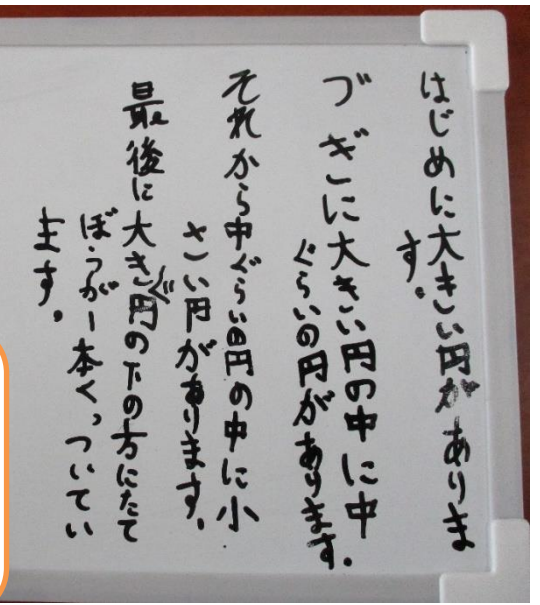 はじめに大きい円がありま
す。
づぎに大きい円の中に中
ぐらいの円があります。
それから中ぐらいの円の中に小
さい円があります。
最後に大きい円の下の方にたて
ぼうが一本くっついてい
ます。